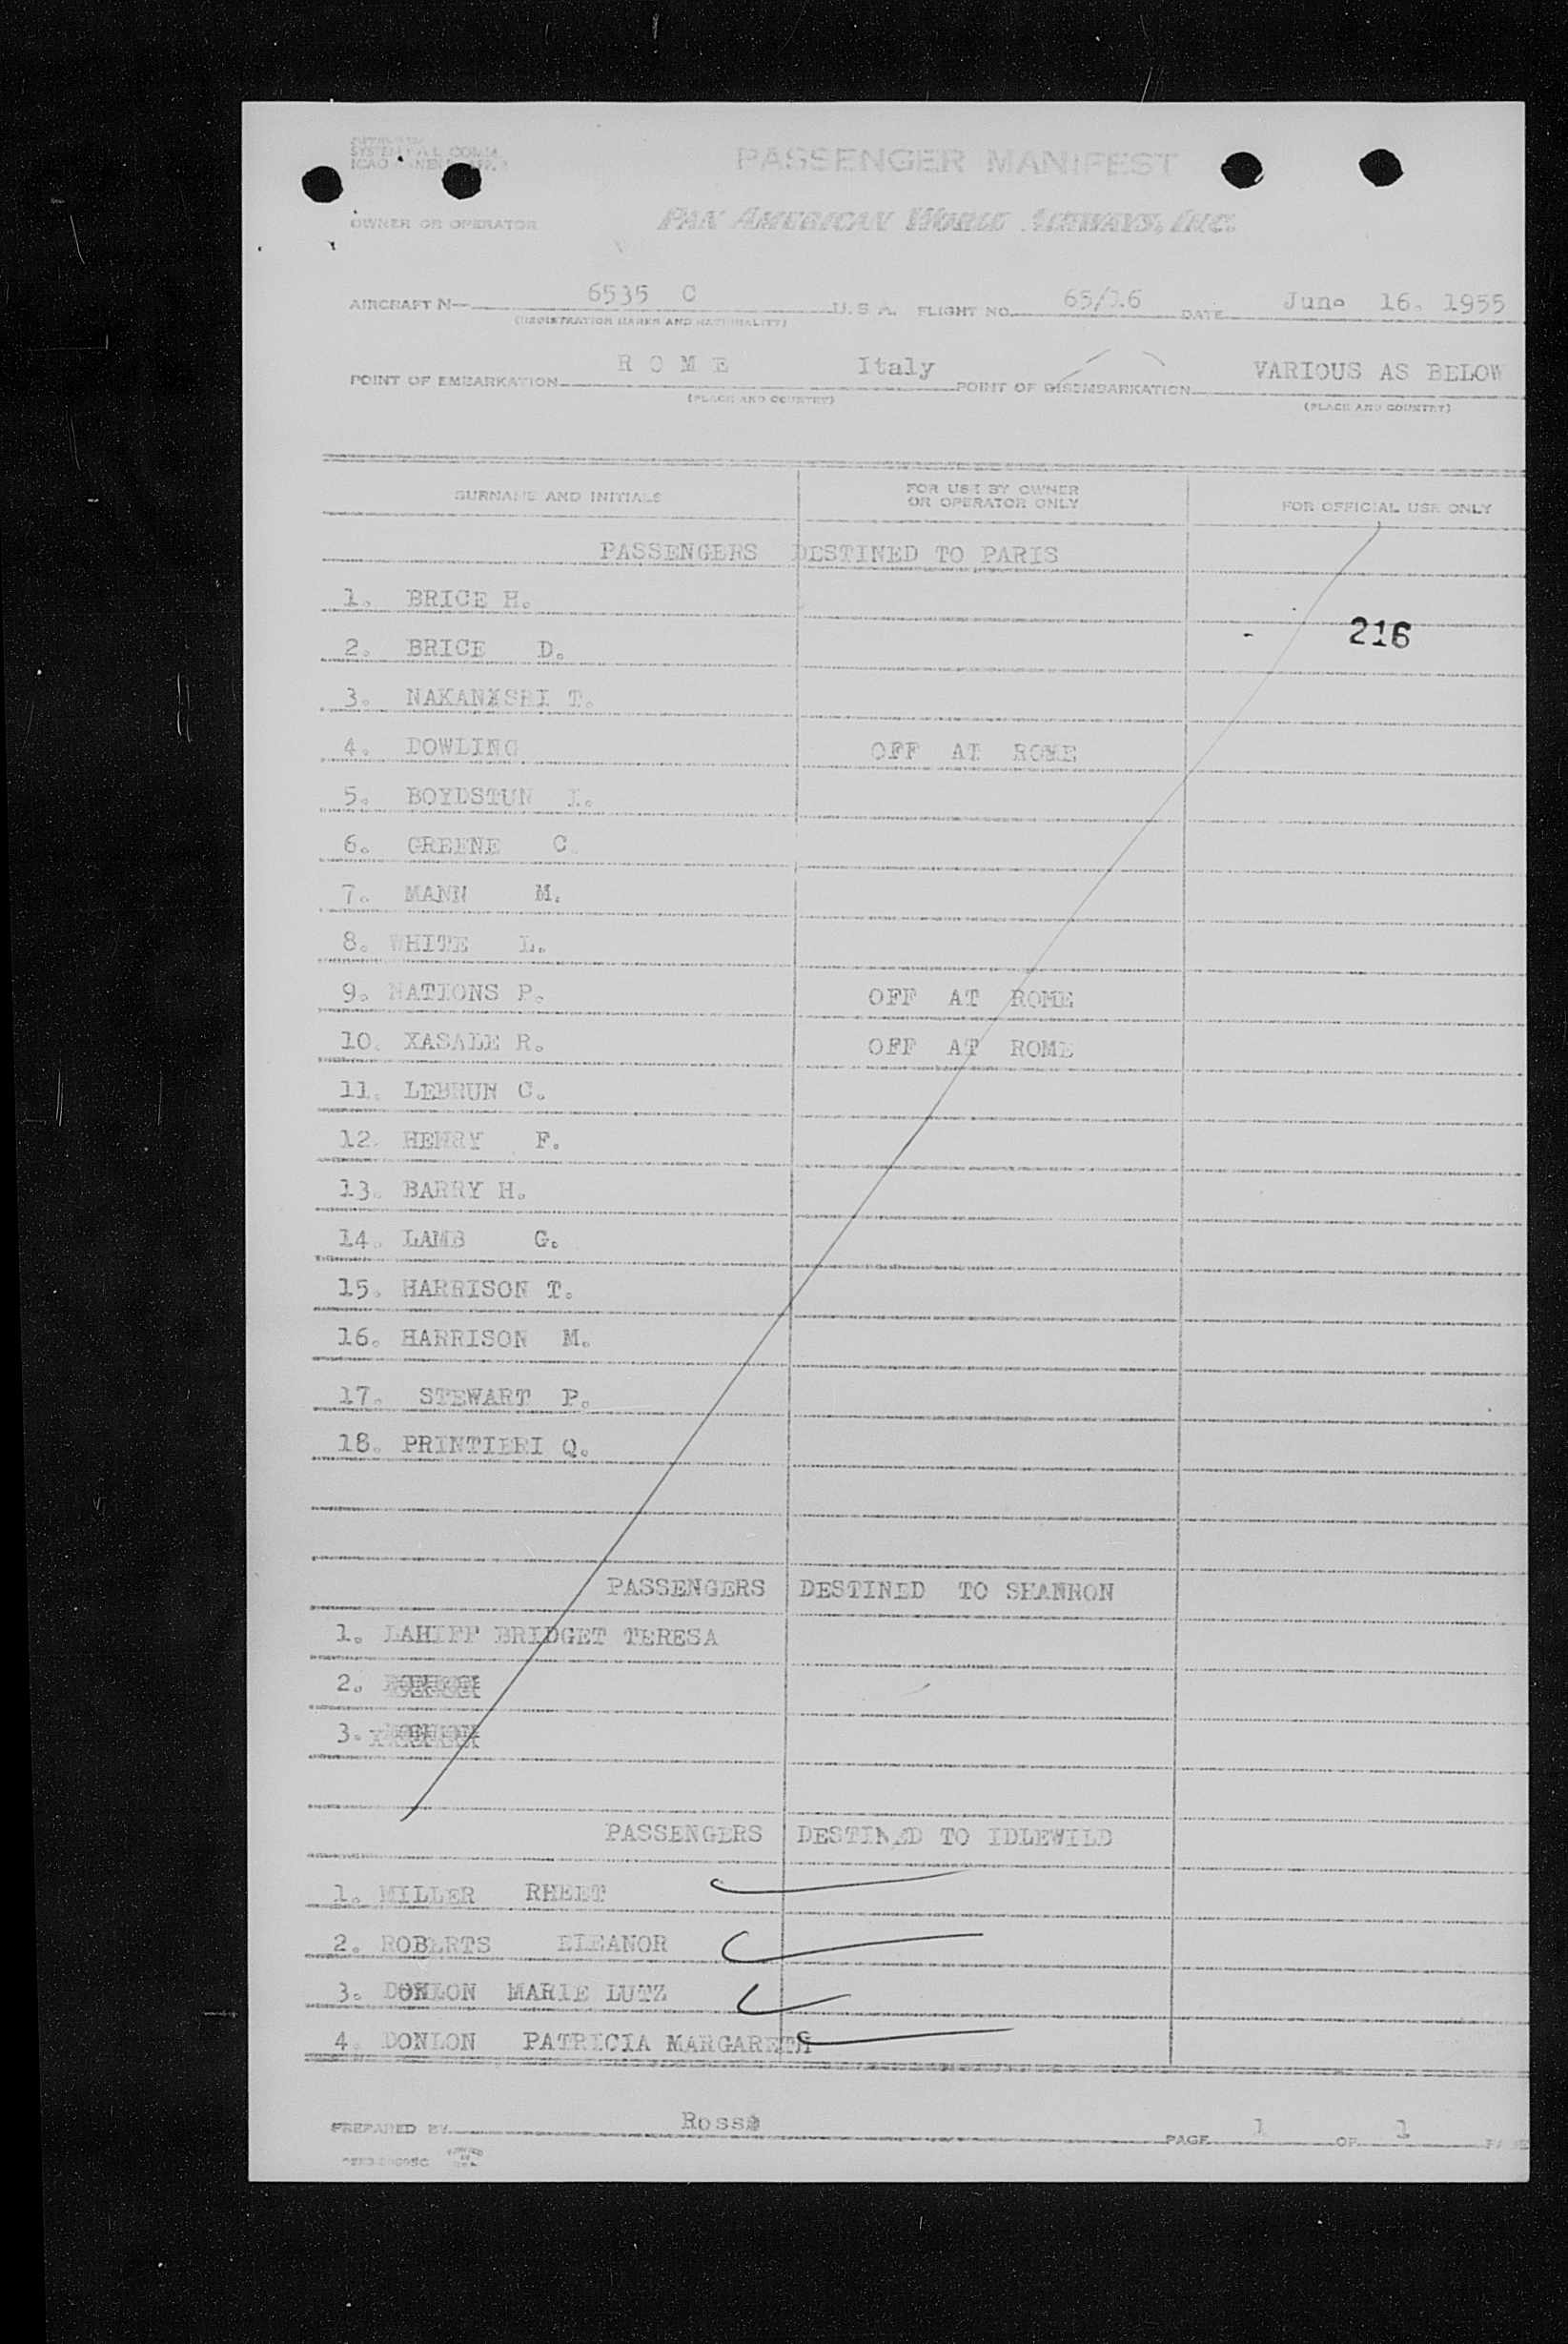 PASSENGER MANIFEST
OWNER OR OPERATOR PAN AMERICAN WORLD AIRWAYS, INC.
AIRCRAFT N— 6535 C U.S.A. FLIGHT NO. 65/16 DATE June 16. 1955
(REGISTRATION MARKS AND NATIONALITY)
POINT OF EMBARKATION R O M E Italy POINT OF DISEMBARKATION VARIOUS AS BELOW
(PLACE AND COUNTRY) (PLACE AND COUNTRY)
SURNAME AND INITIALS FOR USE BY OWNER OR OPERATOR ONLY FOR OFFICIAL USE ONLY
PASSENGERS DESTINED TO PARIS
1. BRICE H.
216
2. BRICE D.
3. NAKANISHI T.
4. DOWLING OFF AT ROME
5. BOYDSTUN I.
6. GREENE C.
7. MANN M.
8. WHITE L.
9. NATIONS P. OFF AT ROME
10. XASALE R. OFF AT ROME
11. LEBRUN C.
12. HENRY F.
13. BARRY H.
14. LAMB G.
15. HARRISON T.
16. HARRISON M.
17. STEWART P.
18. PRINTIERI Q.
PASSENGERS DESTINED TO SHANNON
1. LAHIFF BRIDGET TERESA
2.
3.
PASSENGERS DESTINED TO IDLEWILD
1. MILLER RHEET
2. ROBERTS ELEANOR
3. DONLON MARIE LUTZ
4. DONLON PATRICIA MARGARETH
PREPARED BY Ross PAGE 1 OF 1 PAGE